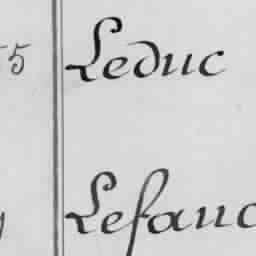 5 Leduc
Lefauc